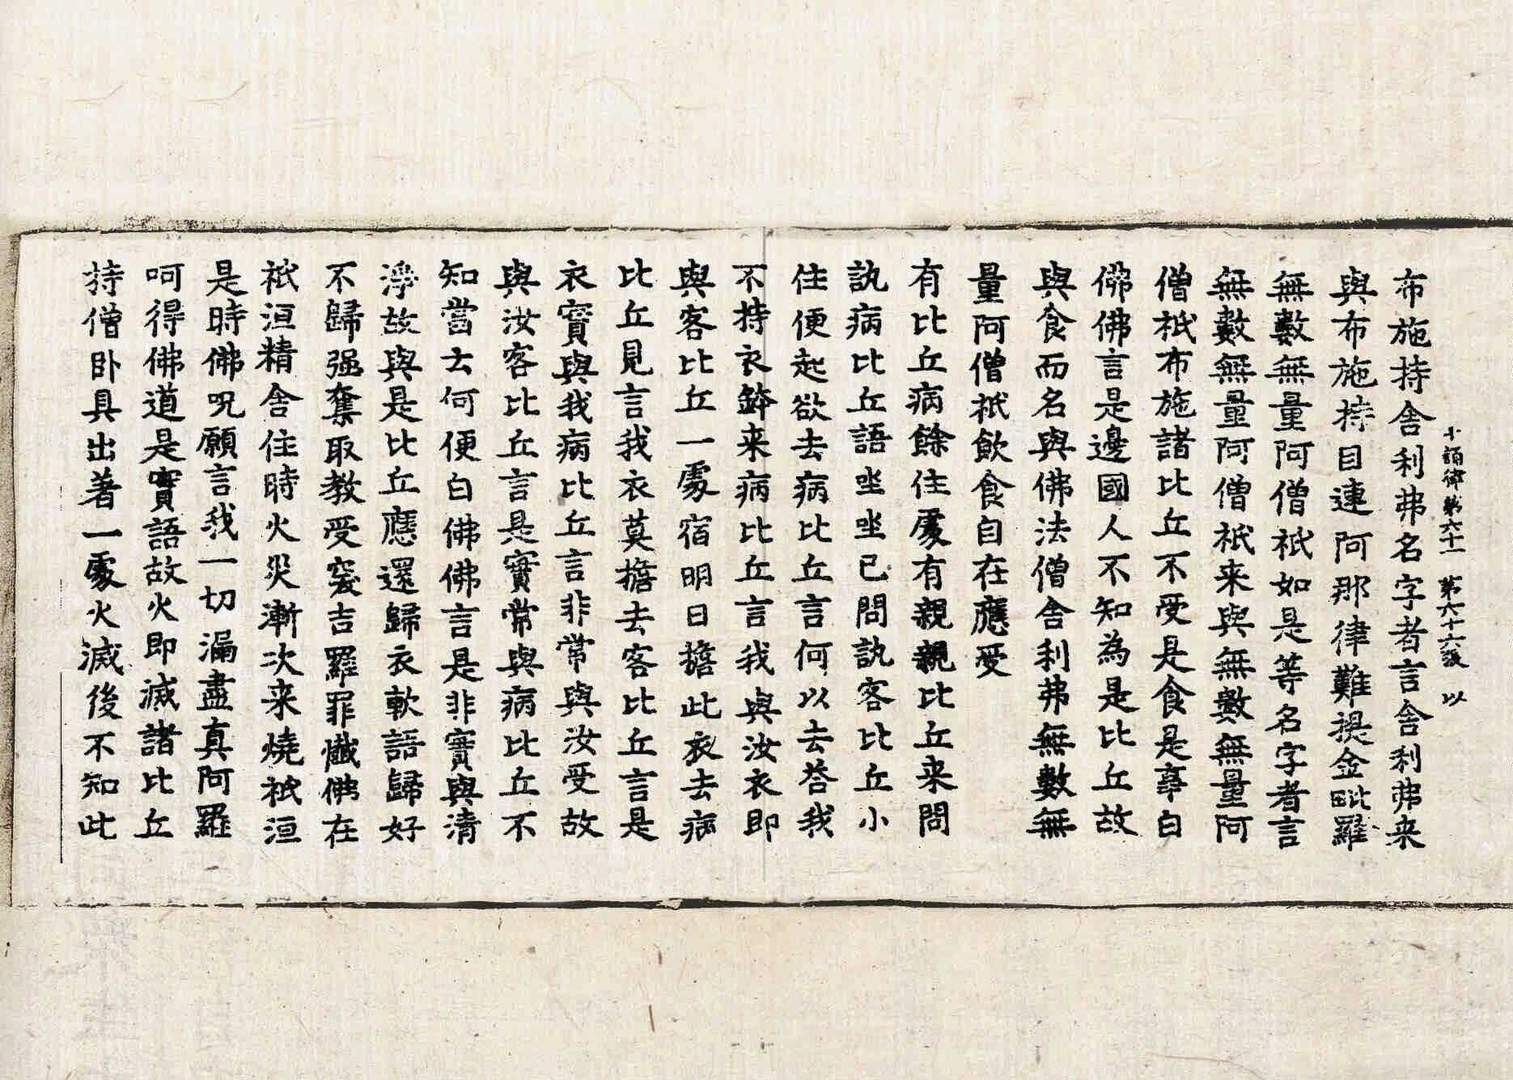 十誦律第六十一　第六十六張　以
布施持舍利弗名字者言舍利弗来
與布施持目連阿那律難提金毗羅
無數無量阿僧祇如是等名字者言
無數無量阿僧祇来與無數無量阿
僧祇布施諸比丘不受是食是事白
佛佛言是邊國人不知為是比丘故
與食而名與佛法僧舍利弗無數無
量阿僧祇飲食自在應受
有比丘病餘住處有親親比丘来問
訊病比丘語坐坐已問訊客比丘小
住便起欲去病比丘言何以去荅我
不持衣鉢来病比丘言我與汝衣即
與客比丘一處宿明日擔此衣去病
比丘見言我衣莫擔去客比丘言是
衣實與我病比丘言非常與汝受故
與汝客比丘言是實常與病比丘不
知當云何便白佛佛言是非實與清
淨故與是比丘應還歸衣軟語歸好
不歸强奪取教受突吉羅罪懺佛在
祇洹精舍住時火災漸次来燒祇洹
是時佛呪願言我一切漏盡真阿羅
呵得佛道是實語故火即滅諸比丘
持僧卧具出著一處火滅後不知此